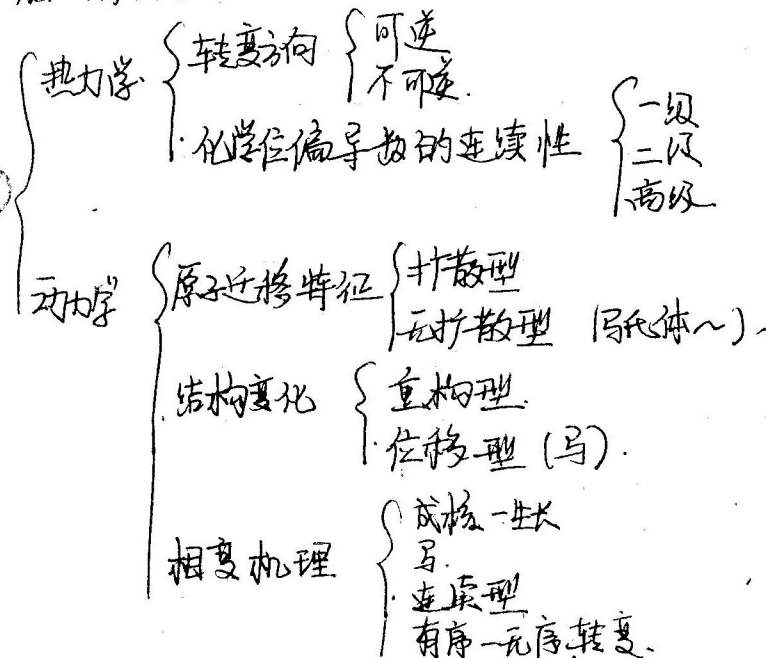 热力学
转变方向
可逆
不可逆.
化学位偏导数的连续性
一级
二级
高级
动力学
原子迁移特征
扩散型
无扩散型 (马氏体~).
结构变化
重构型.
位移型 (马).
相变机理
成核-生长
马.
连续型
有序-无序转变.